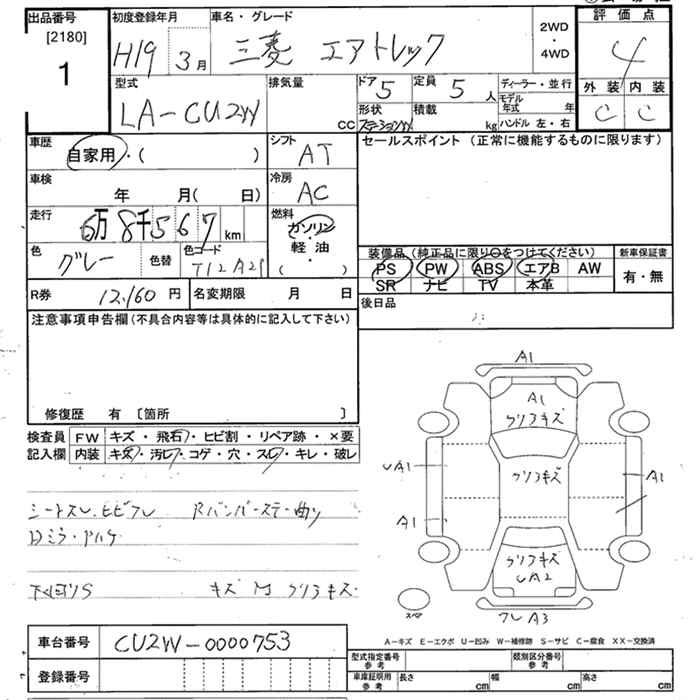 出品番号
[2180]
1
初度登録年月
H19 3月
車名・グレード
三菱 エアトレック
2WD
・
4WD
評価点
4
外装 内装
C C
型式
LA-CU2W
排気量
CC
ドア 5
定員 5 人
形状
ステーションW
積載
kg
ディーラー・並行
モデル年式 年
ハンドル 左・右
車歴
自家用・( )
シフト
AT
セールスポイント (正常に機能するものに限ります)
車検
年 月( 日)
冷房
AC
走行
6万8千567 km
燃料
ガソリン
・
軽・油
( )
色
グレー
色替
色コード
装備品 (純正品に限り○をつけてください)
PS PW ABS エアB AW
SR ナビ TV 本革
新車保証書
有・無
R券 12,160 円
名変期限 月 日
後日品
注意事項申告欄 (不具合内容等は具体的に記入して下さい)
修復歴 有 〔箇所 〕
検査員
記入欄
FW キズ・飛石・ヒビ割・リペア跡・×要
内装 キズ・汚レ・コゲ・穴・スレ・キレ・破レ
シートスレ ヒビワレ Rバンパーステー曲り
下回りS キズ M クリアキズ
A1
A1
クリアキズ
クリアキズ
UA1
A1
A1
クリアキズ
UA2
スペア
ワレA3
A-キズ E-エクボ U-凹み W-補修跡 S-サビ C-腐食 XX-交換済
車台番号
CU2W-0000753
登録番号
型式指定番号
参考
類別区分番号
参考
車庫証明用
参考
長さ cm
幅 cm
高さ cm